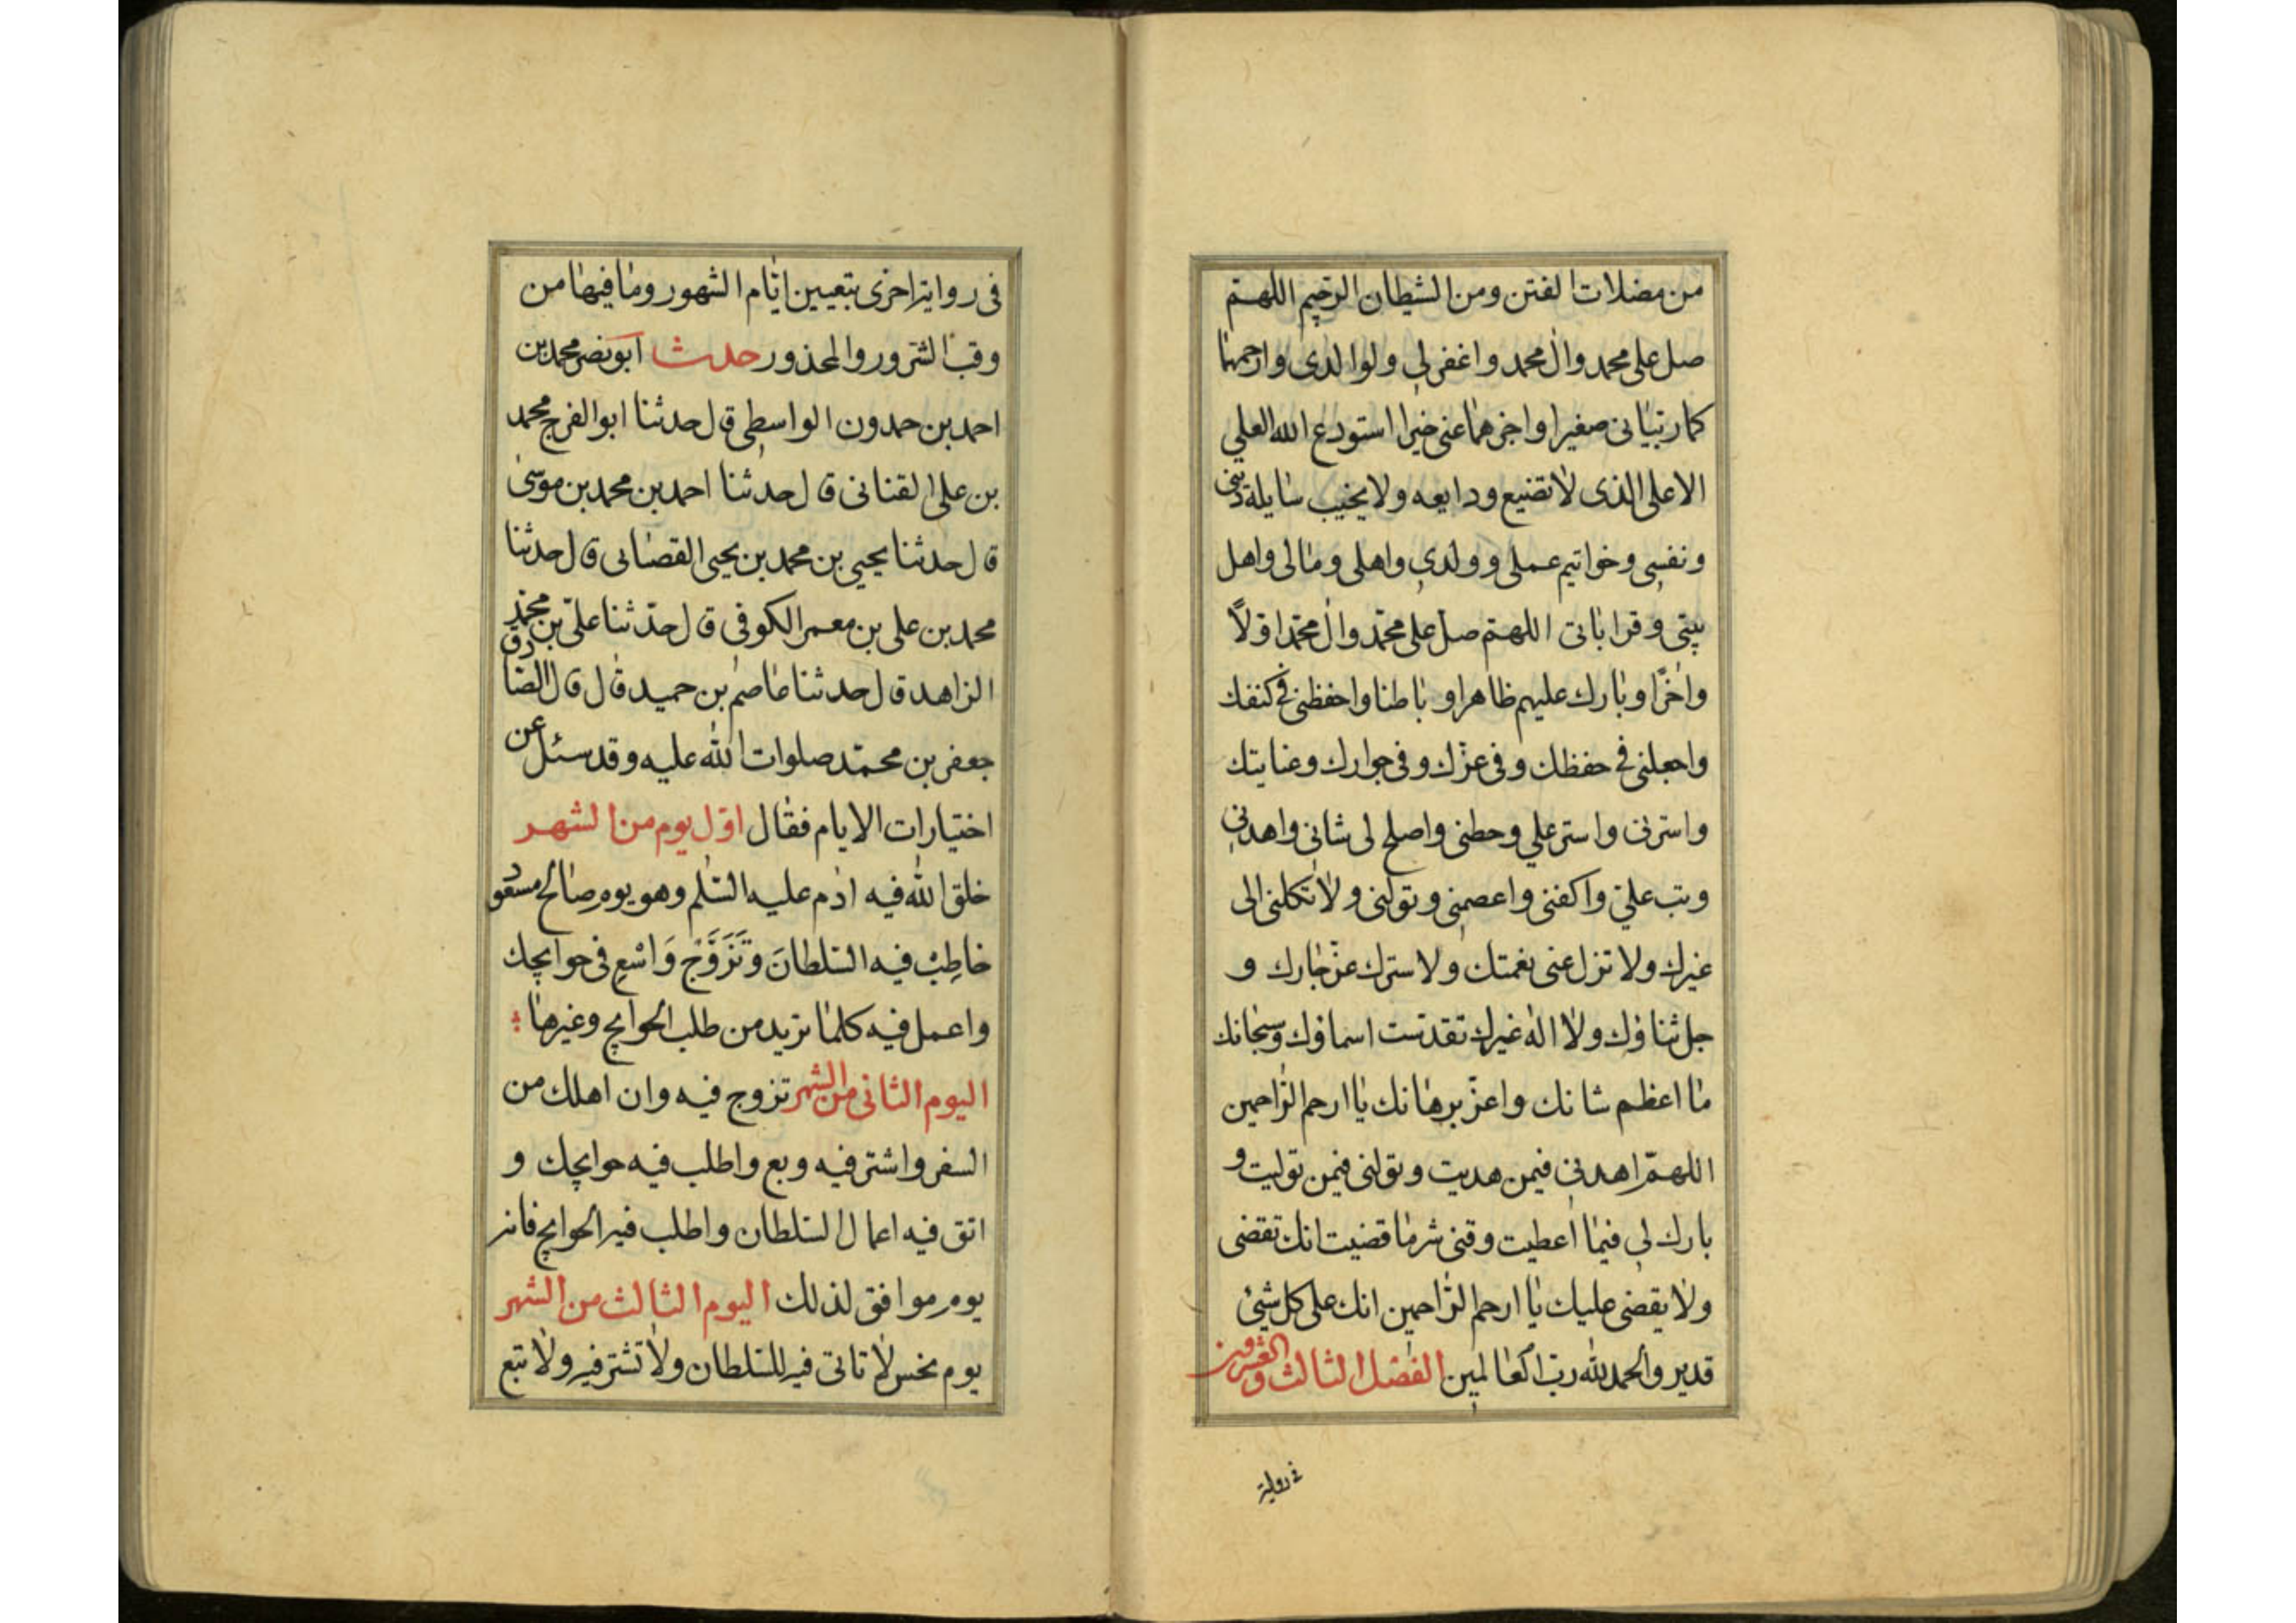 من مضلات الفتن ومن الشيطان الرجيم اللهم
صل على محمد وال محمد واغفر لي ولوالدى وارحمهما
كما ربيانى صغيرا واجزهما عنى خيرا استودع الله العلي
الاعلى الذى لا تضيع ودايعه ولا يخيب سايله دينى
ونفسى وخواتيم عملى وولدى واهلى ومالى واهل
بيتى وقراباتى اللهم صل على محمد وال محمد اولاً
واخرًا وبارك عليهم ظاهرا وباطنا واحفظنى فى كنفك
واجعلنى فى حفظك وفى عزك وفى جوارك وعنايتك
واسترنى واستر علي وحطنى واصلح لى شانى واهدنى
وتب علي واكفنى واعصمنى وتولنى ولا تكلنى الى
غيرك ولا تزل عنى نعمتك ولا سترك عز جارك و
جل ثناؤك ولا اله غيرك تقدست اسماؤك وسبحانك
ما اعظم شانك واعز برهانك يا ارحم الراحمين
اللهم اهدنى فيمن هديت وتولنى فيمن توليت و
بارك لى فيما اعطيت وقنى شر ما قضيت انك تقضى
ولا يقضى عليك يا ارحم الراحمين انك على كل شيئ
قدير والحمد لله رب العالمين الفصل الثالث والعشرون
فى رواية
فى رواية اخرى بتعيين ايام الشهور وما فيها من
وقت السرور والمحذور حدث ابو نصر محمد بن
احمد بن حمدون الواسطى قال حدثنا ابو الفرج محمد
بن على القنانى قال حدثنا احمد بن محمد بن موسى
قال حدثنا يحيى بن محمد بن يحيى القصانى قال حدثنا
محمد بن على بن معمر الكوفى قال حدثنا علي بن محمد
الزاهد قال حدثنا عاصم بن حميد قال قال الصادق
جعفر بن محمد صلوات الله عليه وقد سئل عن
اختيارات الايام فقال اول يوم من الشهر
خلق الله فيه ادم عليه السلم وهو يوم صالح مسعود
خاطِبْ فيه السلطانَ وتَزَوَّجْ وَاسْعِ فى حوايجك
واعمل فيه كلما تريد من طلب الحوايج وغيرها
اليوم الثانى من الشهر تزوج فيه وات اهلك من
السفر واشتر فيه وبع واطلب فيه حوايجك و
اتق فيه اعمال السلطان واطلب فيه الحوايج فانه
يوم موافق لذلك اليوم الثالث من الشهر
يوم نحس لا تاتى فيه للسلطان ولا تشتر فيه ولا تبع